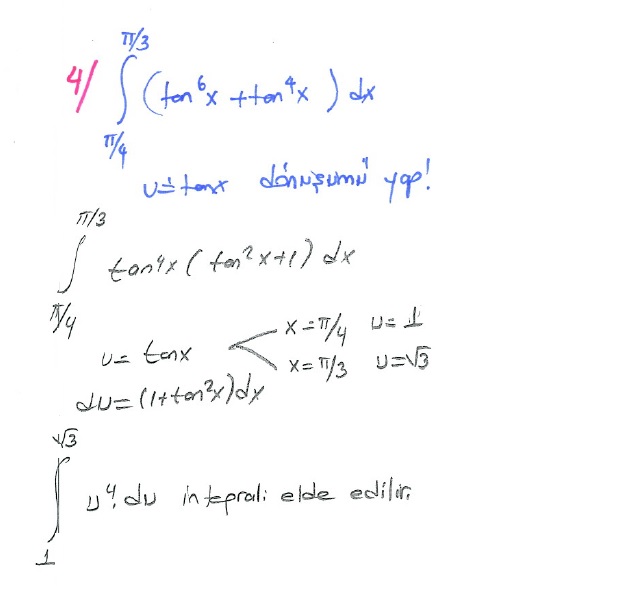 π/3
4/ ∫ (tan⁶x + tan⁴x) dx
π/4
u=tanx dönüşümü yap!
π/3
∫ tan⁴x (tan²x+1) dx
π/4
x=π/4 u=1
u= tanx
x=π/3 u=√3
du=(1+tan²x)dx
√3
∫ u⁴. du integrali elde edilir.
1